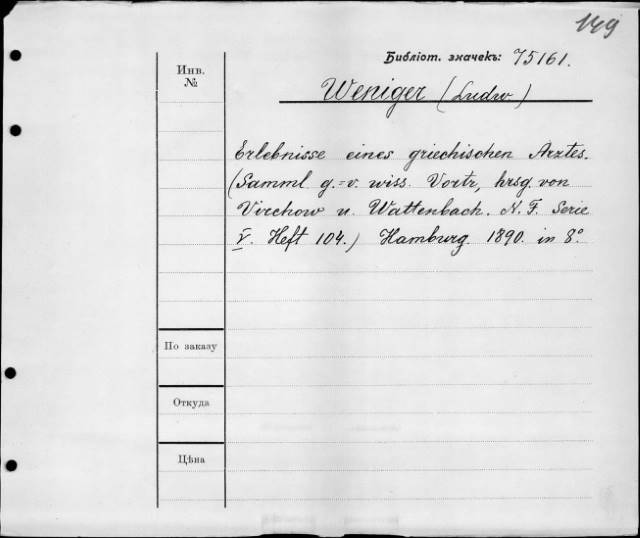 149
Библіот. значекъ: 75161.
Инв.
№
Weniger (Ludw.)
Erlebnisse eines griechischen Arztes.
(Samml g.-v. wiss. Vortr, hrsg. von
Virchow u. Wattenbach. N. F. Serie
V. Heft 104.) Hamburg. 1890. in 8°.
По заказу
Откуда
Цѣна